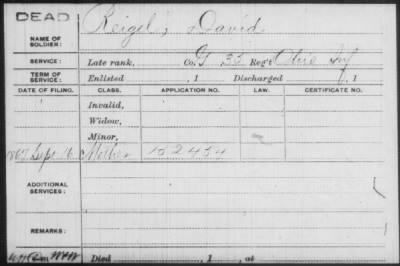 DEAD
Reigel, David
NAME OF SOLDIER:
SERVICE: Late rank, Co. G 35 Reg't Ohio Inf
TERM OF SERVICE: Enlisted , 1 Discharged , 1
DATE OF FILING. CLASS. APPLICATION NO. LAW. CERTIFICATE NO.
Invalid,
Widow,
Minor,
1867 Sept 16 Mother 152454
ADDITIONAL SERVICES:
REMARKS:
Died , 1 , at